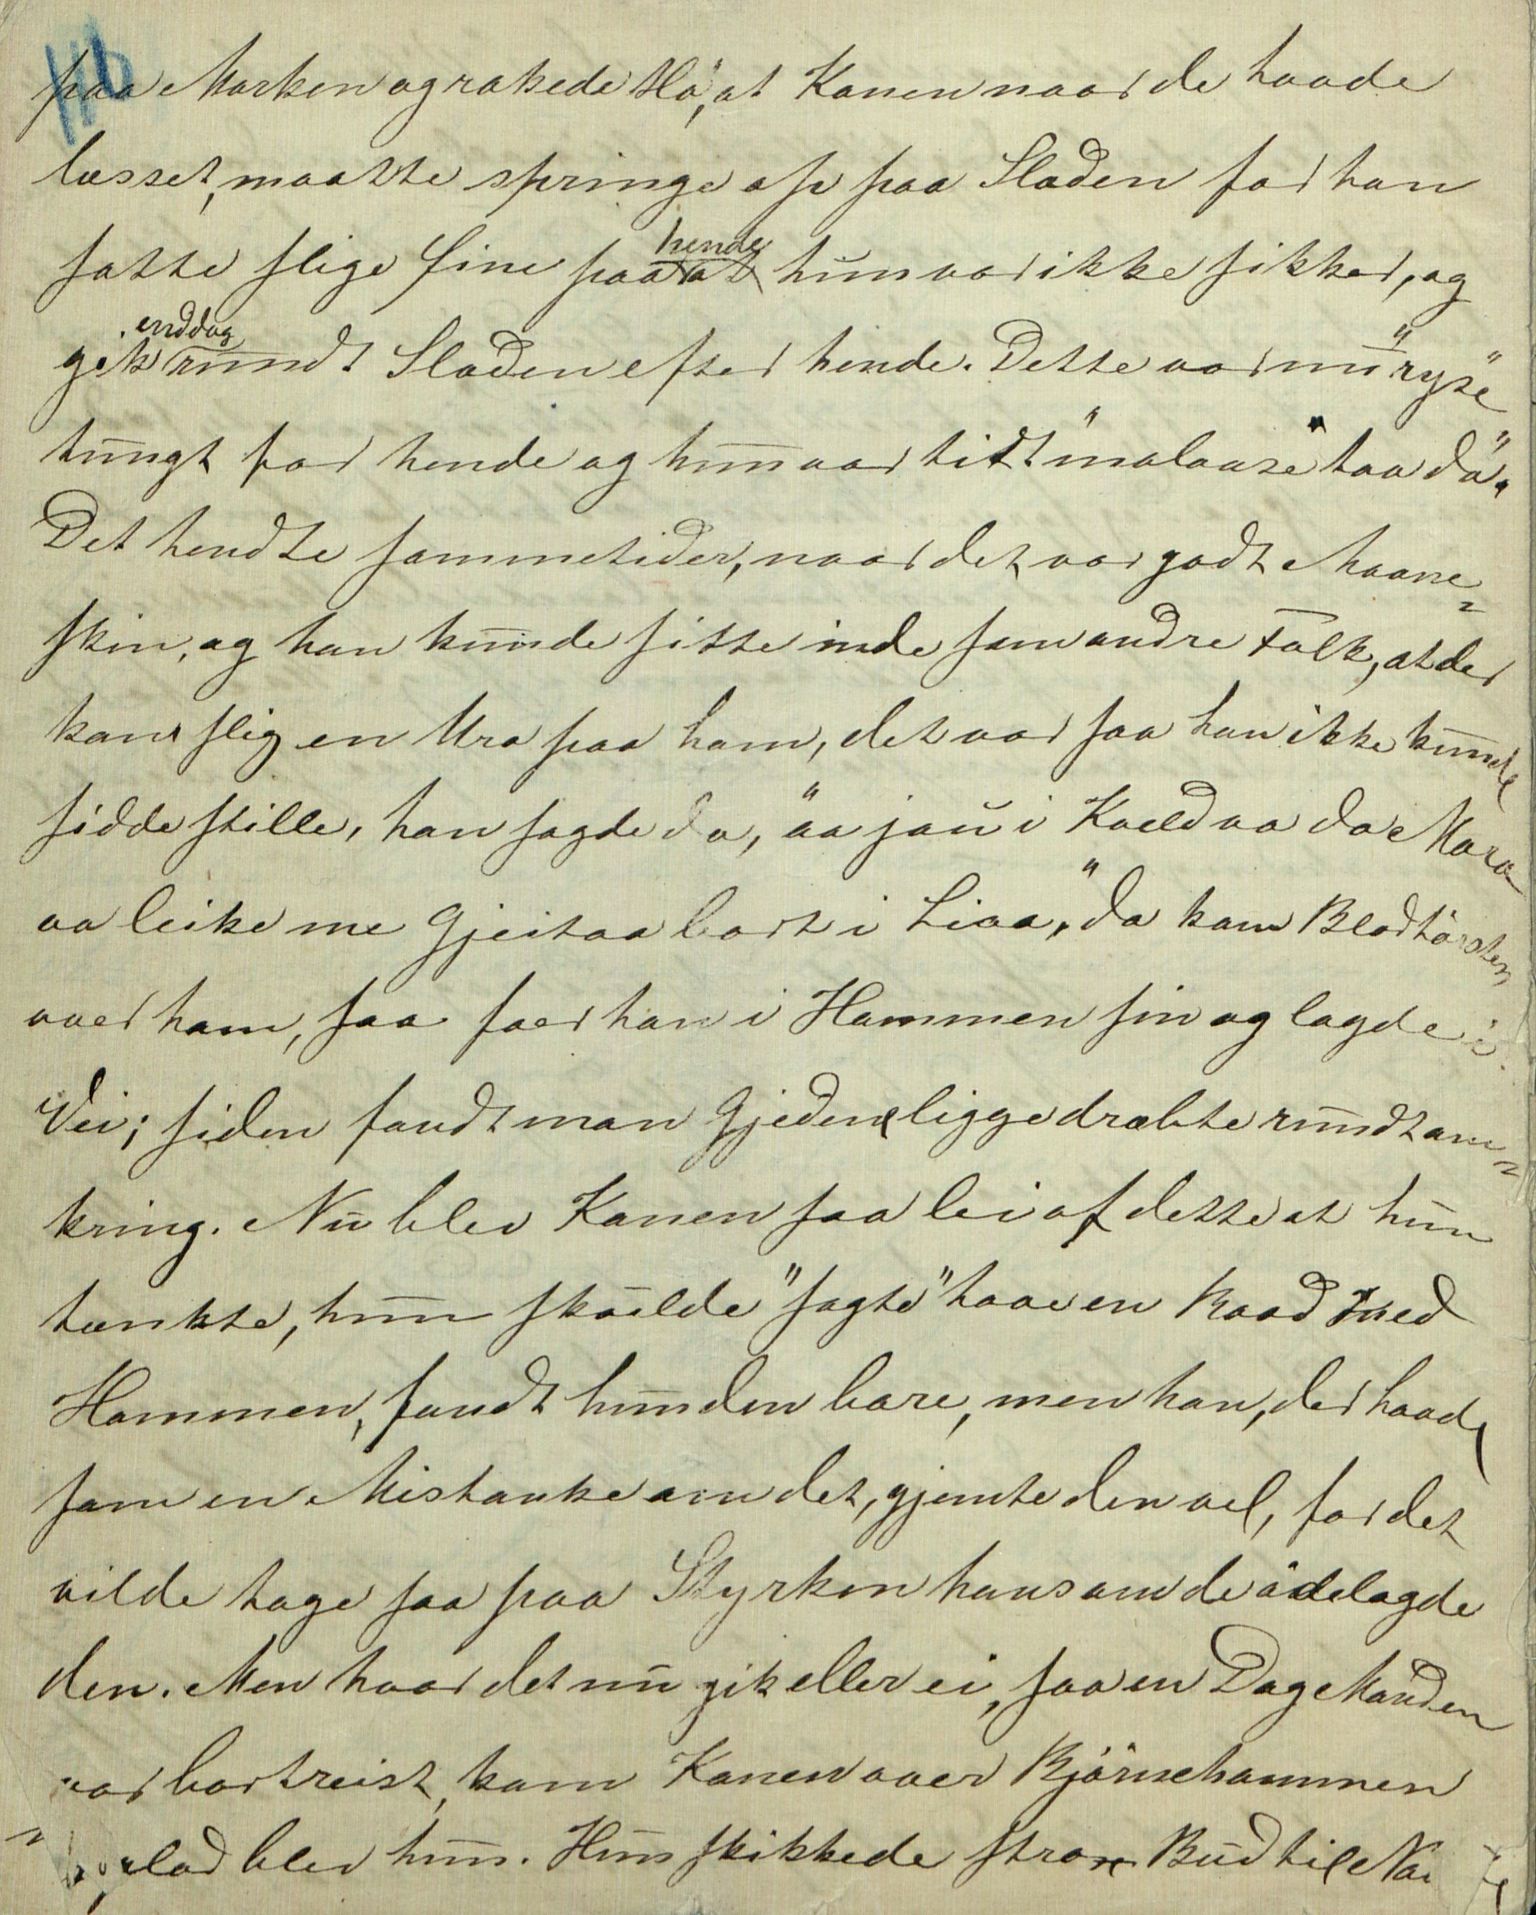 116
paa Marken og rakede Hö, at Konen naar de havde
læsset, maatte springe op paa Sladen for han
satte slige Sine paa hende at hun var ikke sikker, og
gik enddog rundt Sladen efter hende. Dette var nu "ryse"
tungt for hende og hun var tidt "malaase taa dö".
Det hendte sommetider, naar det var godt Maane-
skin, og han kunde sitte inde som andre Folk, at der
kom slig en Uro paa ham, det var saa han ikke kunde
sidde stille, han sagde da, "aa jau i Kveld va da Mora
aa leike me Gjeitaa bort i Livaa," da kom Blodtörsten
over ham, saa foer han i Hammen sin og lagde i
Vei; siden fandt man Gjederne ligge dræbte rundtom-
kring. Nu blev Konen saa lei af dette at hun
tænkte, hun skulde "sagte" taae en Raad med
Hammen, fandt hun den bare, men han, der havde
som en Mistanke om det, gjemte den vel, for det
vilde tage saa paa Styrken hans om de ödelagde
den. Men hvor det nu gik eller ei, saa en Dag Manden
var bortreist, kom Konen over Björnehammen
glad blev hun. Hun skikkede strax Bud til